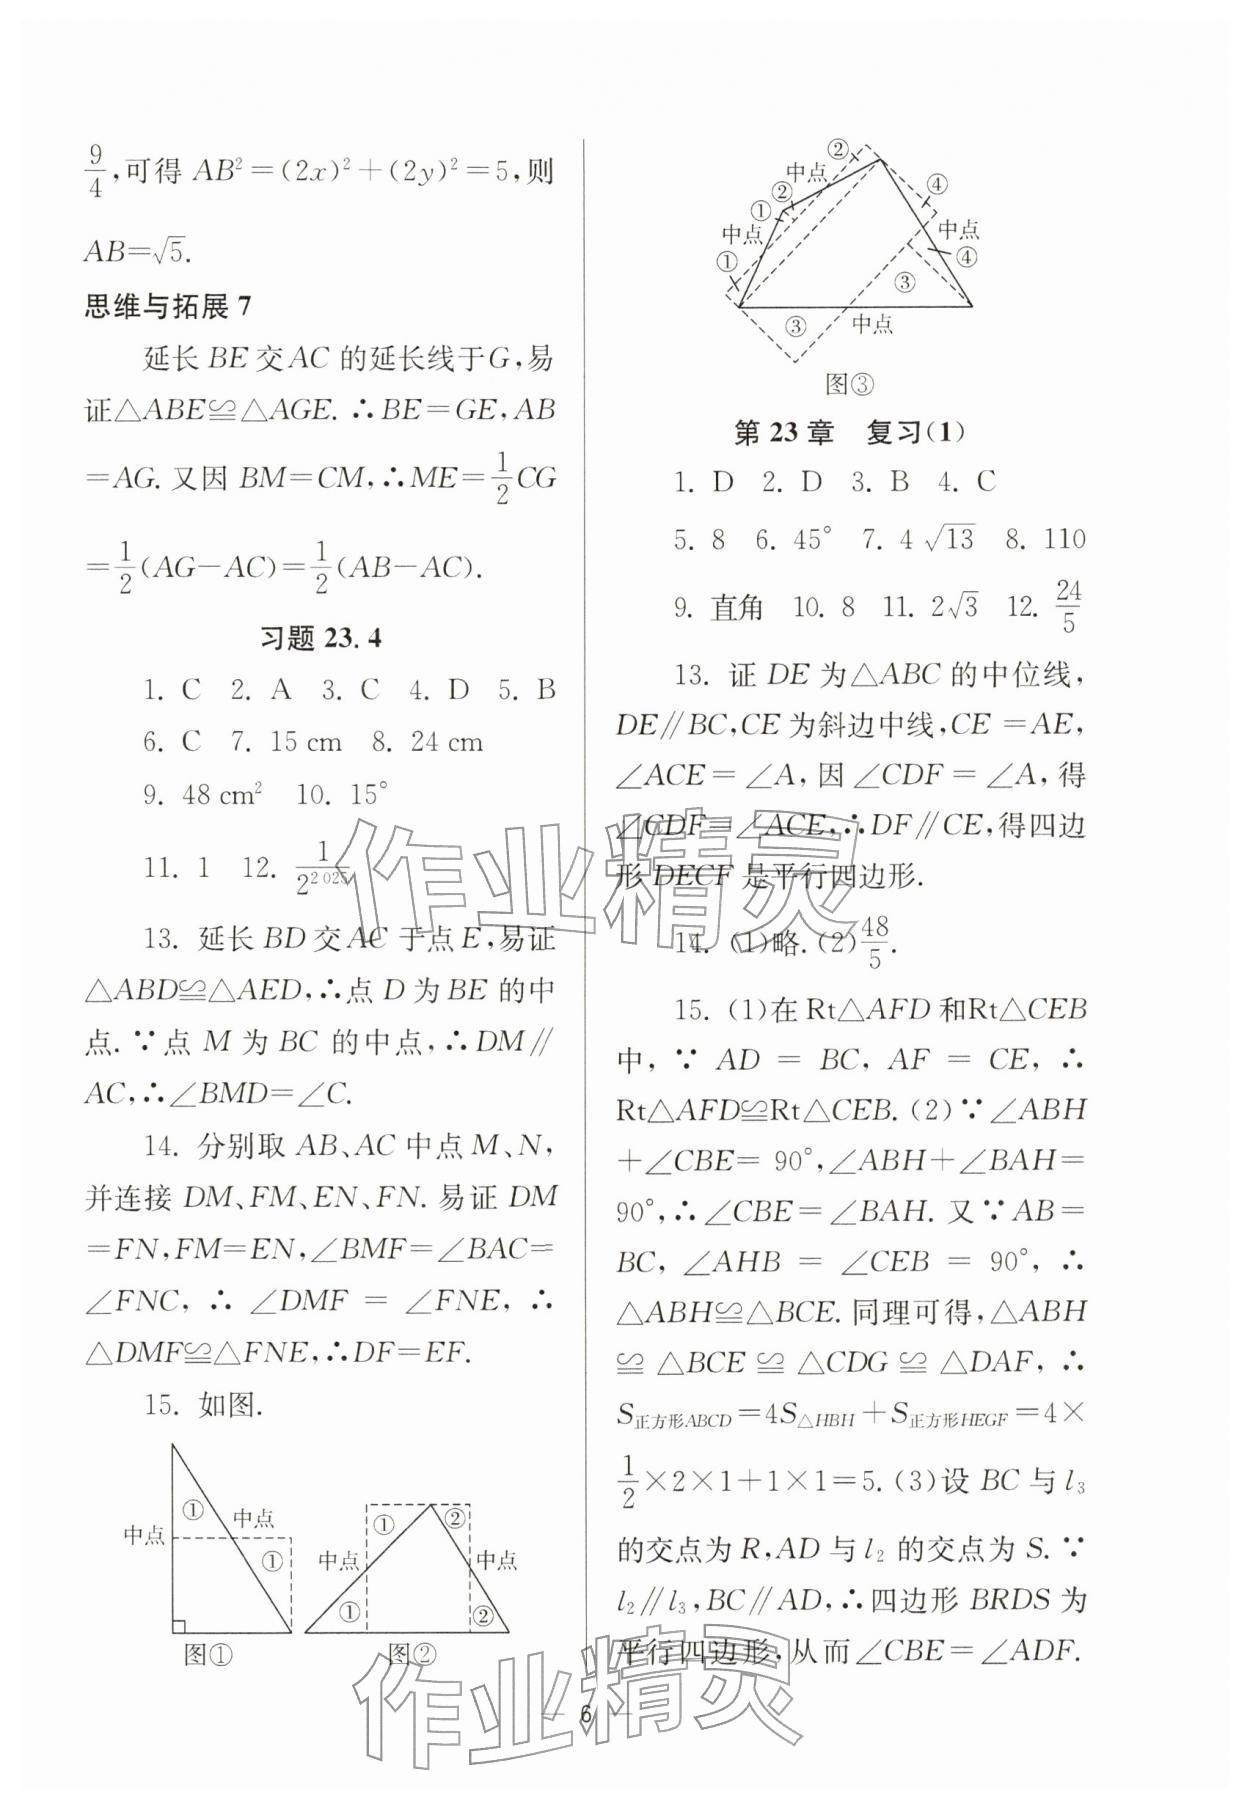 9/4,可得 AB²=(2x)²+(2y)²=5,则
AB=√5.
思维与拓展 7
延长 BE 交 AC 的延长线于 G,易
证△ABE≌△AGE. ∴BE=GE,AB
=AG. 又因 BM=CM,∴ME=1/2 CG
=1/2(AG-AC)=1/2(AB-AC).
习题 23.4
1. C 2. A 3. C 4. D 5. B
6. C 7. 15 cm 8. 24 cm
9. 48 cm² 10. 15°
11. 1 12. 1/2^2 025
13. 延长 BD 交 AC 于点 E,易证
△ABD≌△AED,∴点 D 为 BE 的中
点. ∵点 M 为 BC 的中点,∴DM∥
AC,∴∠BMD=∠C.
14. 分别取 AB、AC 中点 M、N,
并连接 DM、FM、EN、FN. 易证 DM
=FN,FM=EN,∠BMF=∠BAC=
∠FNC, ∴ ∠DMF = ∠FNE, ∴
△DMF≌△FNE,∴DF=EF.
15. 如图.
① 中点
中点
①
图①
① ②
中点 中点
① ②
图②
②
中点
② ④
①
中点 中点
① ④
③
③ 中点
图③
第 23 章 复习(1)
1. D 2. D 3. B 4. C
5. 8 6. 45° 7. 4√13 8. 110
9. 直角 10. 8 11. 2√3 12. 24/5
13. 证 DE 为△ABC 的中位线,
DE∥BC,CE 为斜边中线,CE=AE,
∠ACE=∠A,因∠CDF=∠A,得
∠CDF=∠ACE,∴DF∥CE,得四边
形 DECF 是平行四边形.
14. (1)略. (2)48/5.
15. (1)在 Rt△AFD 和Rt△CEB
中, ∵ AD = BC, AF = CE, ∴
Rt△AFD≌Rt△CEB. (2)∵∠ABH
+∠CBE= 90°,∠ABH+∠BAH=
90°,∴∠CBE=∠BAH. 又∵AB=
BC, ∠AHB = ∠CEB = 90°, ∴
△ABH≌△BCE. 同理可得,△ABH
≌ △BCE ≌ △CDG ≌ △DAF, ∴
S正方形ABCD=4S△HBH+S正方形HEGF=4×
1/2×2×1+1×1=5. (3)设 BC 与 l₃
的交点为 R,AD 与 l₂ 的交点为 S. ∵
l₂∥l₃,BC∥AD,∴四边形 BRDS 为
平行四边形,从而∠CBE=∠ADF.
6
作业精灵
作业精灵